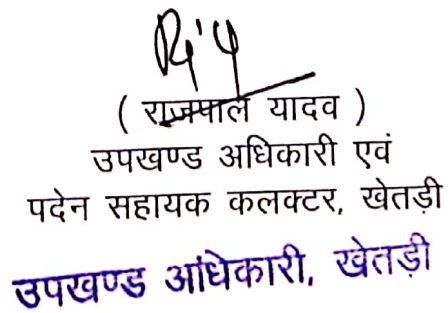 ( राजपाल यादव )
उपखण्ड अधिकारी एवं
पदेन सहायक कलक्टर, खेतड़ी
उपखण्ड अधिकारी, खेतड़ी